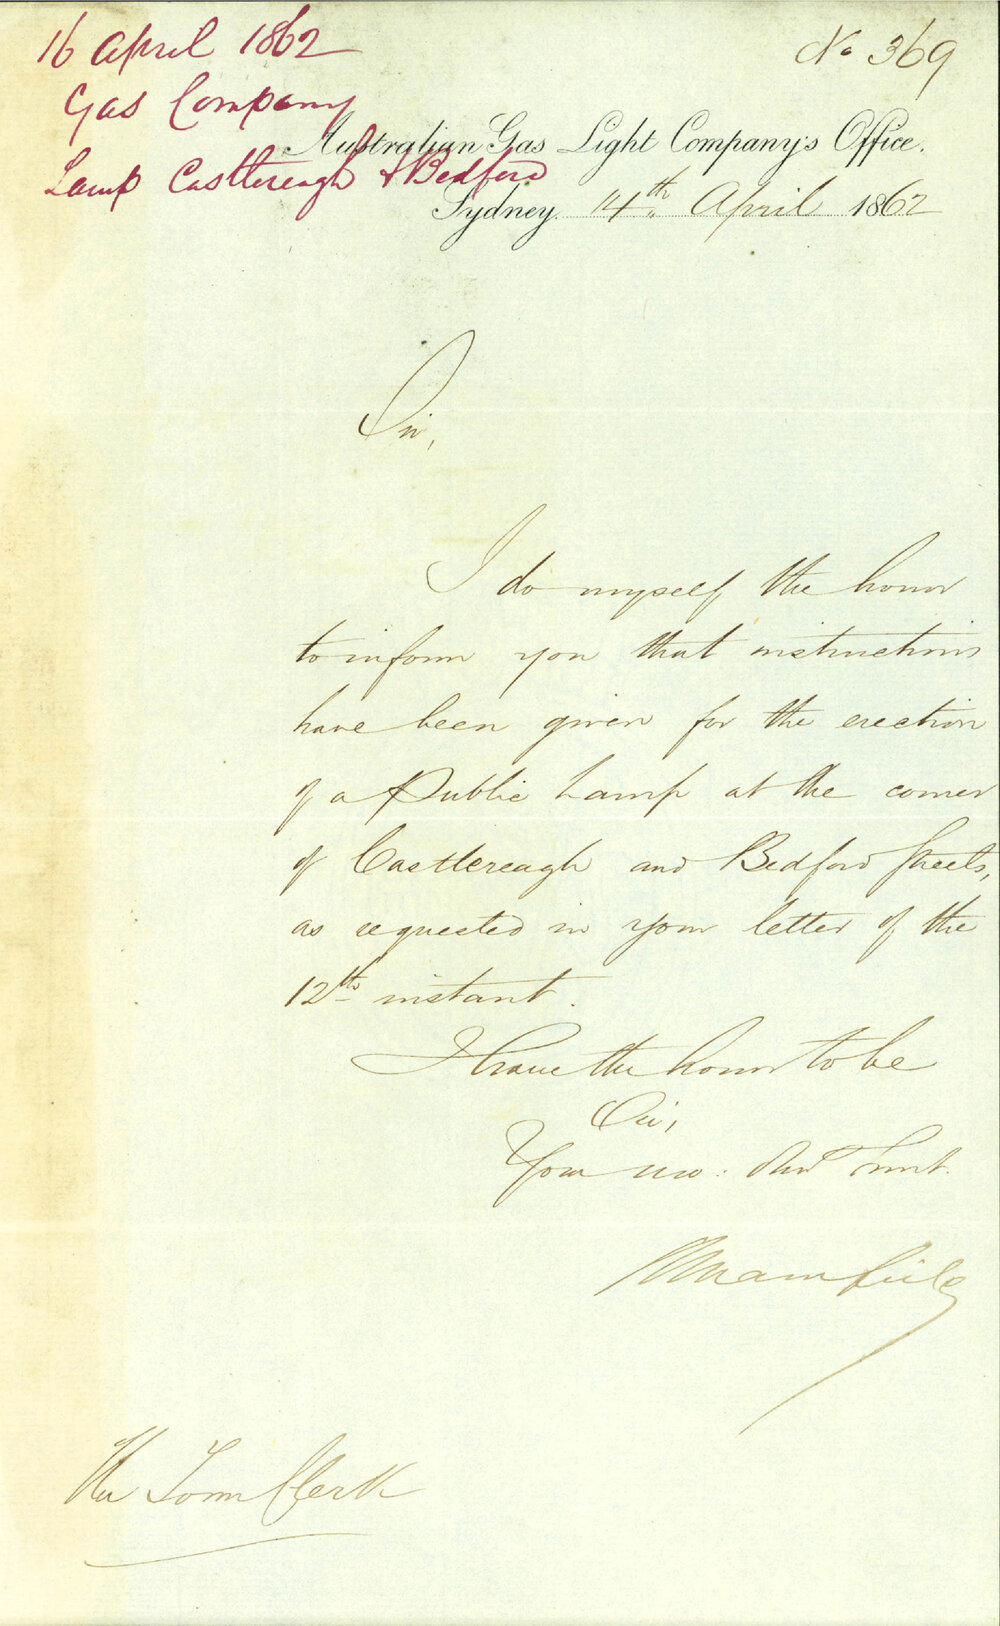 16 April 1862
Gas Company
Lamp Castlereagh & Bedford
No 369
Australian Gas Light Company's Office.
Sydney 14th April 1862
Sir,
I do myself the honor
to inform you that instructions
have been given for the erection
of a Public Lamp at the corner
of Castlereagh and Bedford Streets,
as requested in your letter of the
12th instant.
I have the honor to be
Sir,
Your mo: Obt Servt.
Mansfield
The Town Clerk